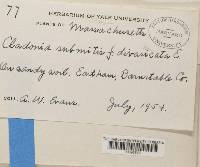 77
HERBARIUM OF YALE UNIVERSITY
PLANTS OF Massachusetts
Cladonia submitis f. divaricata E.
On sandy soil. Eastham, Barnstable Co.
COLL. A. W. Evans July, 1954.